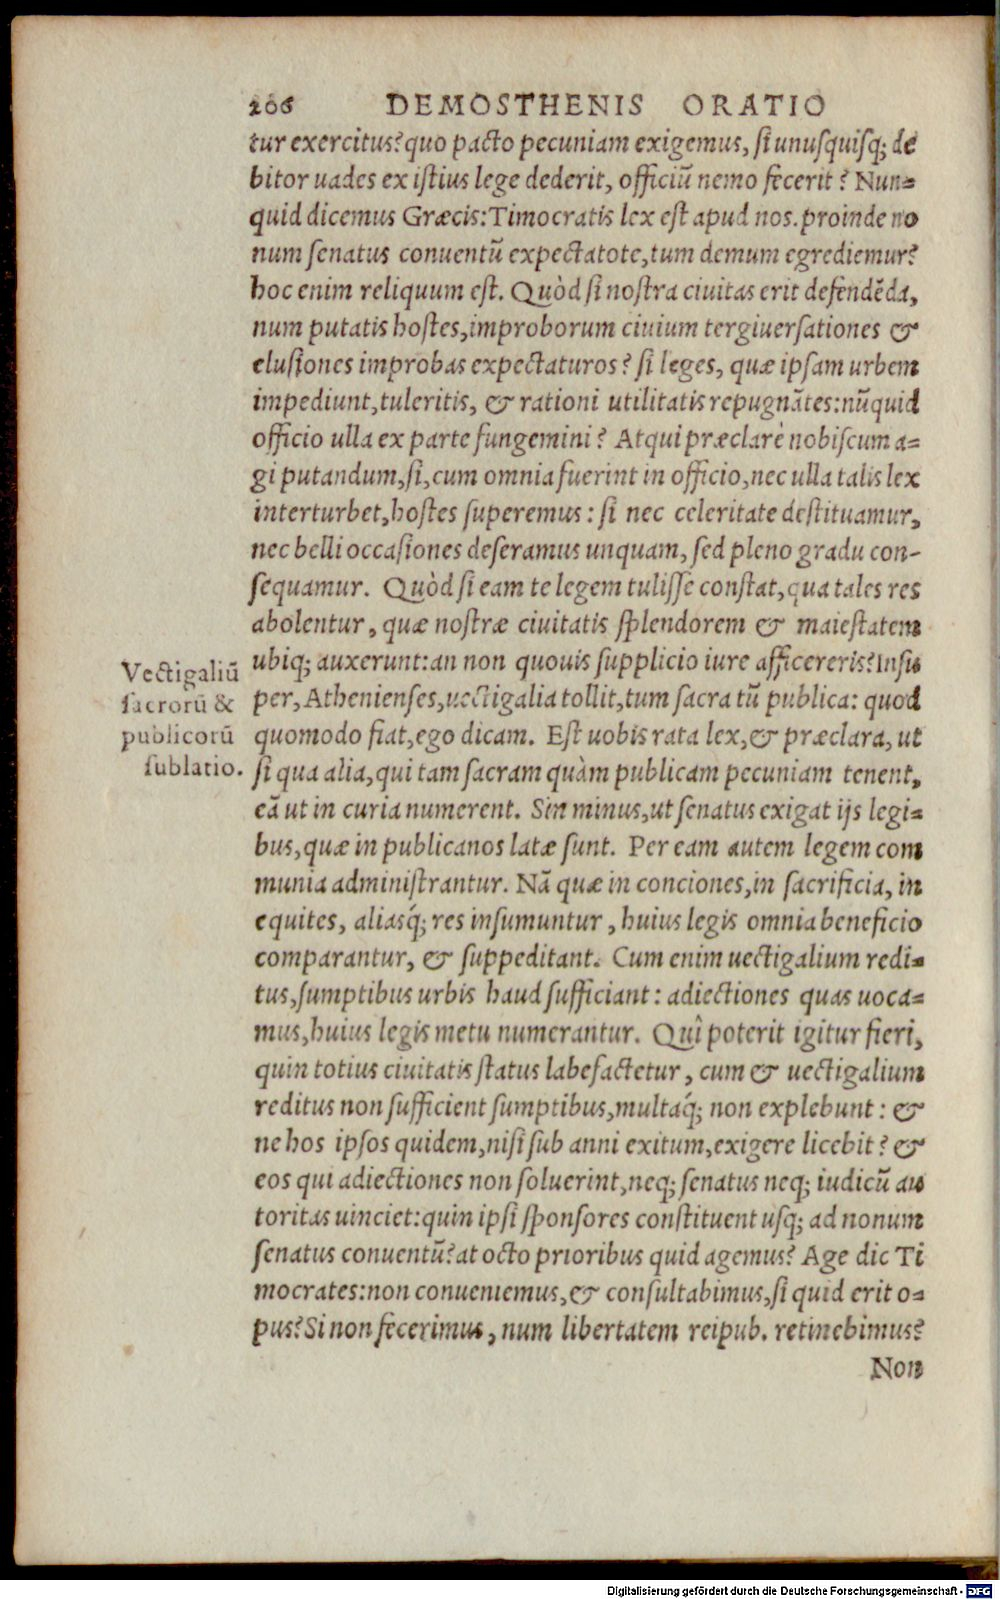 206 DEMOSTHENIS ORATIO
tur exercitus? quo pacto pecuniam exigemus, si unusquisq; de
bitor uades ex istius lege dederit, officiū nemo fecerit? Nun-
quid dicemus Græcis: Timocratis lex est apud nos. proinde no
num senatus conuentū expectatote, tum demum egrediemur?
hoc enim reliquum est. Quòd si nostra ciuitas erit defendēda,
num putatis hostes, improborum ciuium tergiuersationes &
elusiones improbas expectaturos? si leges, quæ ipsam urbem
impediunt, tuleritis, & rationi utilitatis repugnātes: nūquid
officio ulla ex parte fungemini? Atqui præclarè nobiscum a-
gi putandum, si, cum omnia fuerint in officio, nec ulla talis lex
interturbet, hostes superemus: si nec celeritate destituamur,
nec belli occasiones deseramus unquam, sed pleno gradu con-
sequamur. Quòd si eam te legem tulisse constat, qua tales res
abolentur, quæ nostræ ciuitatis splendorem & maiestatem
ubiq; auxerunt: an non quouis supplicio iure afficereris? Insu
per, Athenienses, uectigalia tollit, tum sacra tū publica: quod
quomodo fiat, ego dicam. Est uobis rata lex, & præclara, ut
si qua alia, qui tam sacram quàm publicam pecuniam tenent,
eā ut in curia numerent. Sin minus, ut senatus exigat ijs legi-
bus, quæ in publicanos latæ sunt. Per eam autem legem com
munia administrantur. Nā quæ in conciones, in sacrificia, in
equites, aliasq́; res insumuntur, huius legis omnia beneficio
comparantur, & suppeditant. Cum enim uectigalium redi-
tus, sumptibus urbis haud sufficiant: adiectiones quas uoca-
mus, huius legis metu numerantur. Quî poterit igitur fieri,
quin totius ciuitatis status labefactetur, cum & uectigalium
reditus non sufficient sumptibus, multaq́; non explebunt: &
ne hos ipsos quidem, nisi sub anni exitum, exigere licebit? &
eos qui adiectiones non soluerint, neq; senatus neq; iudicū au
toritas uinciet: quin ipsi sponsores constituent usq; ad nonum
senatus conuentū? at octo prioribus quid agemus? Age dic Ti
mocrates: non conueniemus, & consultabimus, si quid erit o-
pus? Si non fecerimus, num libertatem reipub. retinebimus?
Non
Vectigaliū
sacrorū &
publicorū
sublatio.
Digitalisierung gefördert durch die Deutsche Forschungsgemeinschaft - DFG